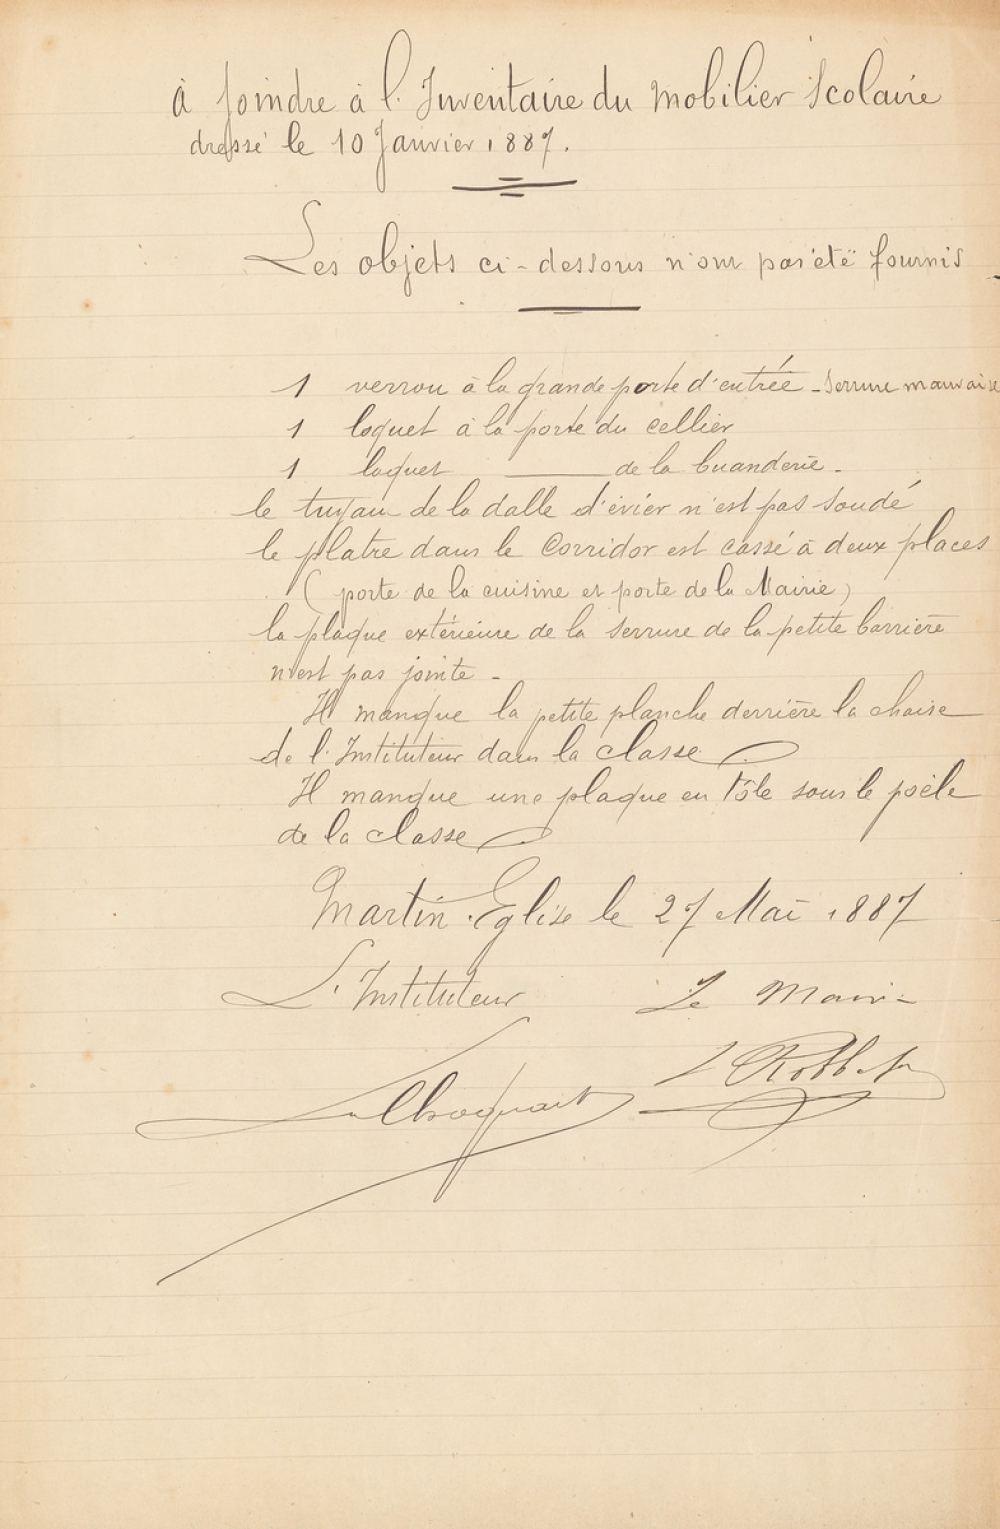 à joindre à l'Inventaire du mobilier scolaire
dressé le 10 Janvier 1887.
Les objets ci-dessous n'ont pas été fournis
1 verrou à la grande porte d'entrée - Serrure mauvaise
1 loquet à la porte du cellier
1 loquet ——— de la buanderie -
le tuyau de la dalle d'évier n'est pas soudé
le platre dans le Corridor est cassé à deux places
(porte de la cuisine et porte de la Mairie)
la plaque extérieure de la serrure de la petite barrière
n'est pas jointe -
Il manque la petite planche derrière la chaise
de l'Instituteur dans la classe
Il manque une plaque en tôle sous le poële
de la classe
Martin-Eglise le 27 Mai 1887
L'Instituteur Le Maire